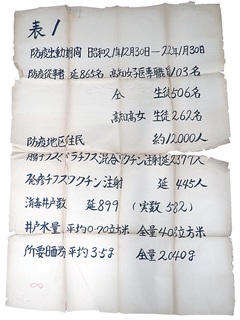 表1
防疫出動期間 昭和21年12月30日―22年1月30日
防疫従事者 延865名 高知女子医専職員103名
仝 生徒506名
高知高女 生徒262名
防疫地区住民 約12,000人
腸チフスパラチフス混合ワクチン注射延2377人
発疹チフスワクチン注射 延 445人
消毒井戸数 延899 (実数 582)
井戸水量 平均0.70立方米 全量40立方米
所要晒粉 平均3.5g 全量2040g